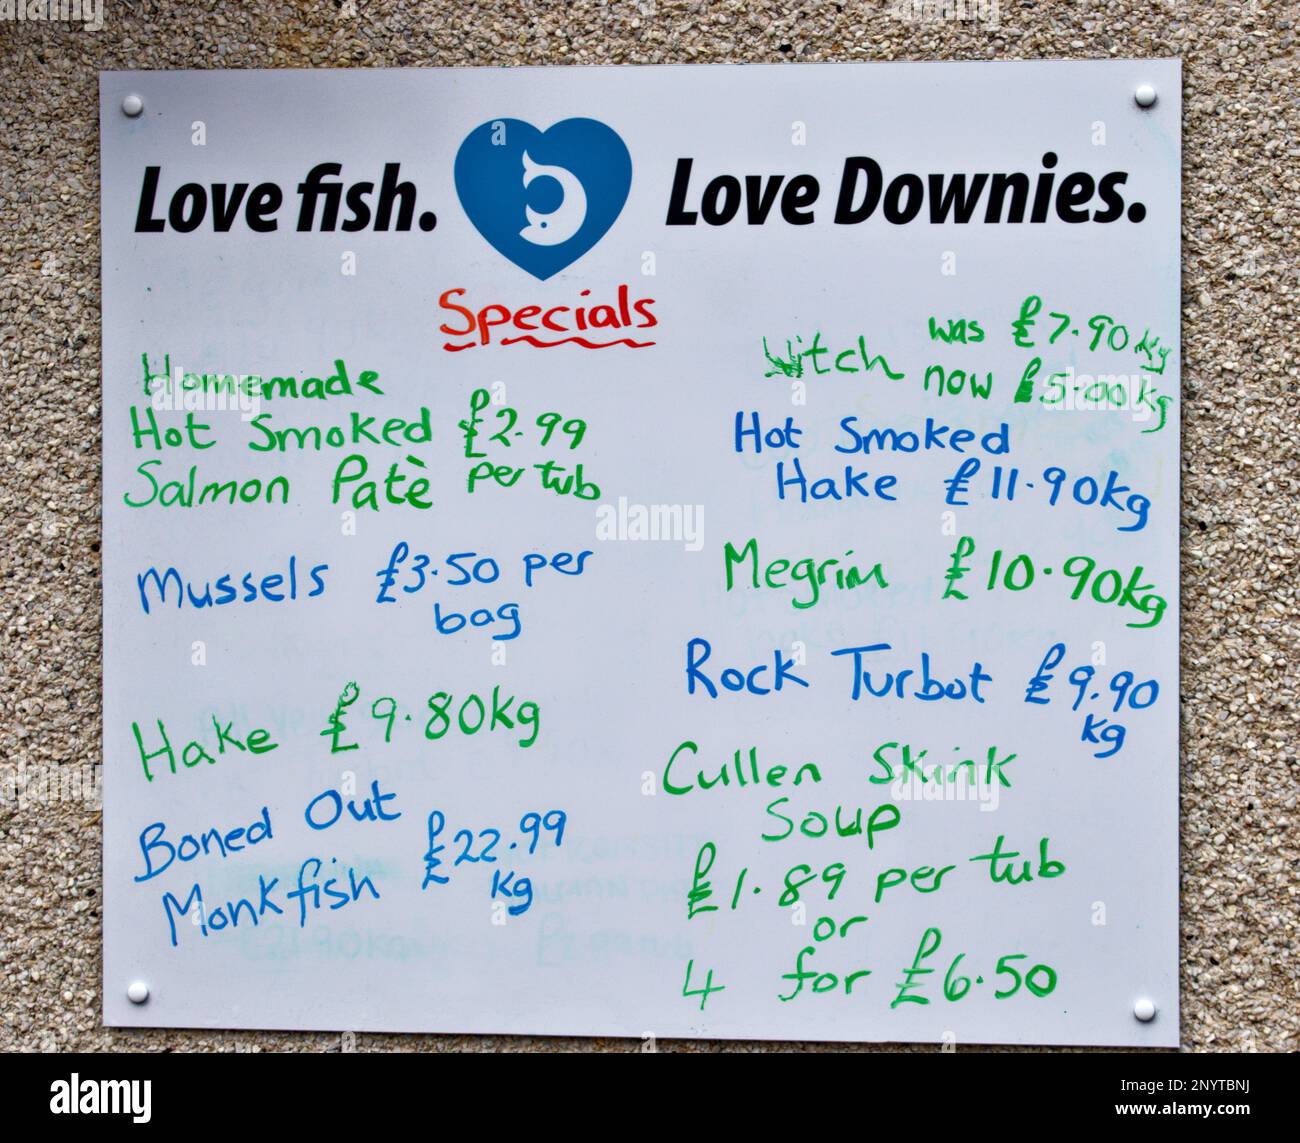 Love fish. Love Downies.
Specials
Homemade
Hot Smoked £2.99
Salmon Patè per tub
Mussels £3.50 per
bag
Hake £9.80kg
Boned Out
Monkfish £22.99
kg
Witch was £7.90 kg
now £5.00 kg
Hot Smoked
Hake £11.90kg
Megrim £10.90kg
Rock Turbot £9.90
kg
Cullen Skink
Soup
£1.89 per tub
or
4 for £6.50
alamy
alamy
Image ID: 2NYTBNJ
www.alamy.com